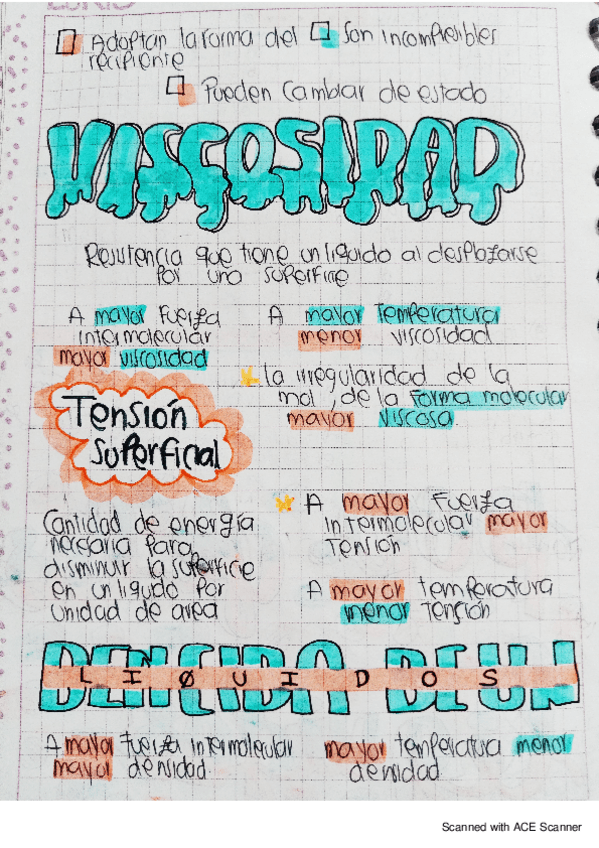 Adoptan la forma del recipiente
Son incompresibles
Pueden cambiar de estado
VISCOSIDAD
Resistencia que tiene un liquido al desplazarse
por una superficie
A mayor Fuerza
intermolecular
mayor viscosidad
A mayor Temperatura
menor viscosidad
la irregularidad de la
mol, de la forma molecular
mayor viscosa.
Tensión
superficial
Cantidad de energía
necesaria para
disminuir la superficie
en un liquido por
unidad de area
A mayor Fuerza
intermolecular mayor
Tensión
A mayor temperatura
menor Tensión
DENCIDA DE UN
LIQUIDOS
A mayor fuerza intermolecular
mayor densidad.
mayor temperatura menor
densidad
Scanned with ACE Scanner